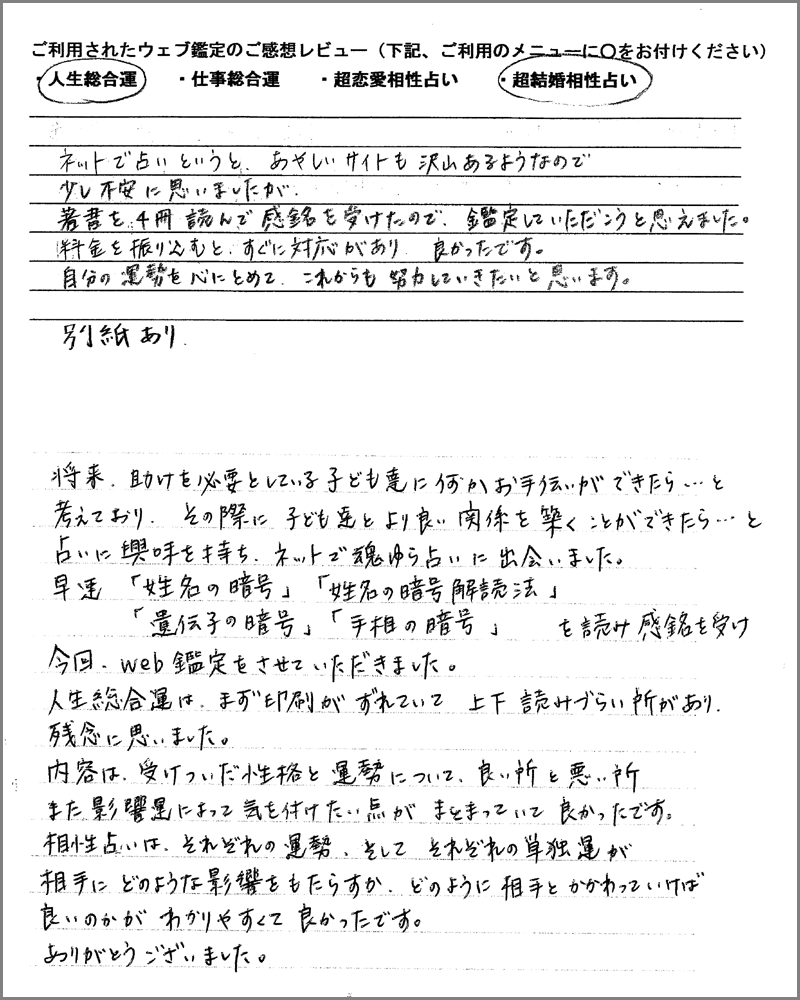 ご利用されたウェブ鑑定のご感想レビュー（下記、ご利用のメニューに〇をお付けください）
・人生総合運　・仕事総合運　・超恋愛相性占い　・超結婚相性占い
ネットで占いというと、あやしいサイトも沢山あるようなので
少し不安に思いましたが、
著書を、4冊 読んで感銘を受けたので、鑑定していただこうと思えました。
料金を振り込むと、すぐに対応があり 良かったです。
自分の運勢を心にとめて、これからも努力していきたいと思います。
別紙あり
将来、助けを必要としている子ども達に何かお手伝いができたら…と
考えており、その際に子ども達とより良い関係を築くことができたら…と
占いに興味を持ち、ネットで魂ゆら占いに出会いました。
早速「姓名の暗号」「姓名の暗号解読法」
「遺伝子の暗号」「手相の暗号」 を読み感銘を受け
今回、web鑑定をさせていただきました。
人生総合運は、まず印刷がずれていて 上下 読みづらい所があり、
残念に思いました。
内容は、受けついだ性格と運勢について、良い所と悪い所
また影響星によって気を付けたい点が まとまっていて良かったです。
相性占いは、それぞれの運勢、そして それぞれの単独運が
相手にどのような影響をもたらすか、どのように相手とかかわっていけば
良いのかが わかりやすくて良かったです。
ありがとうございました。